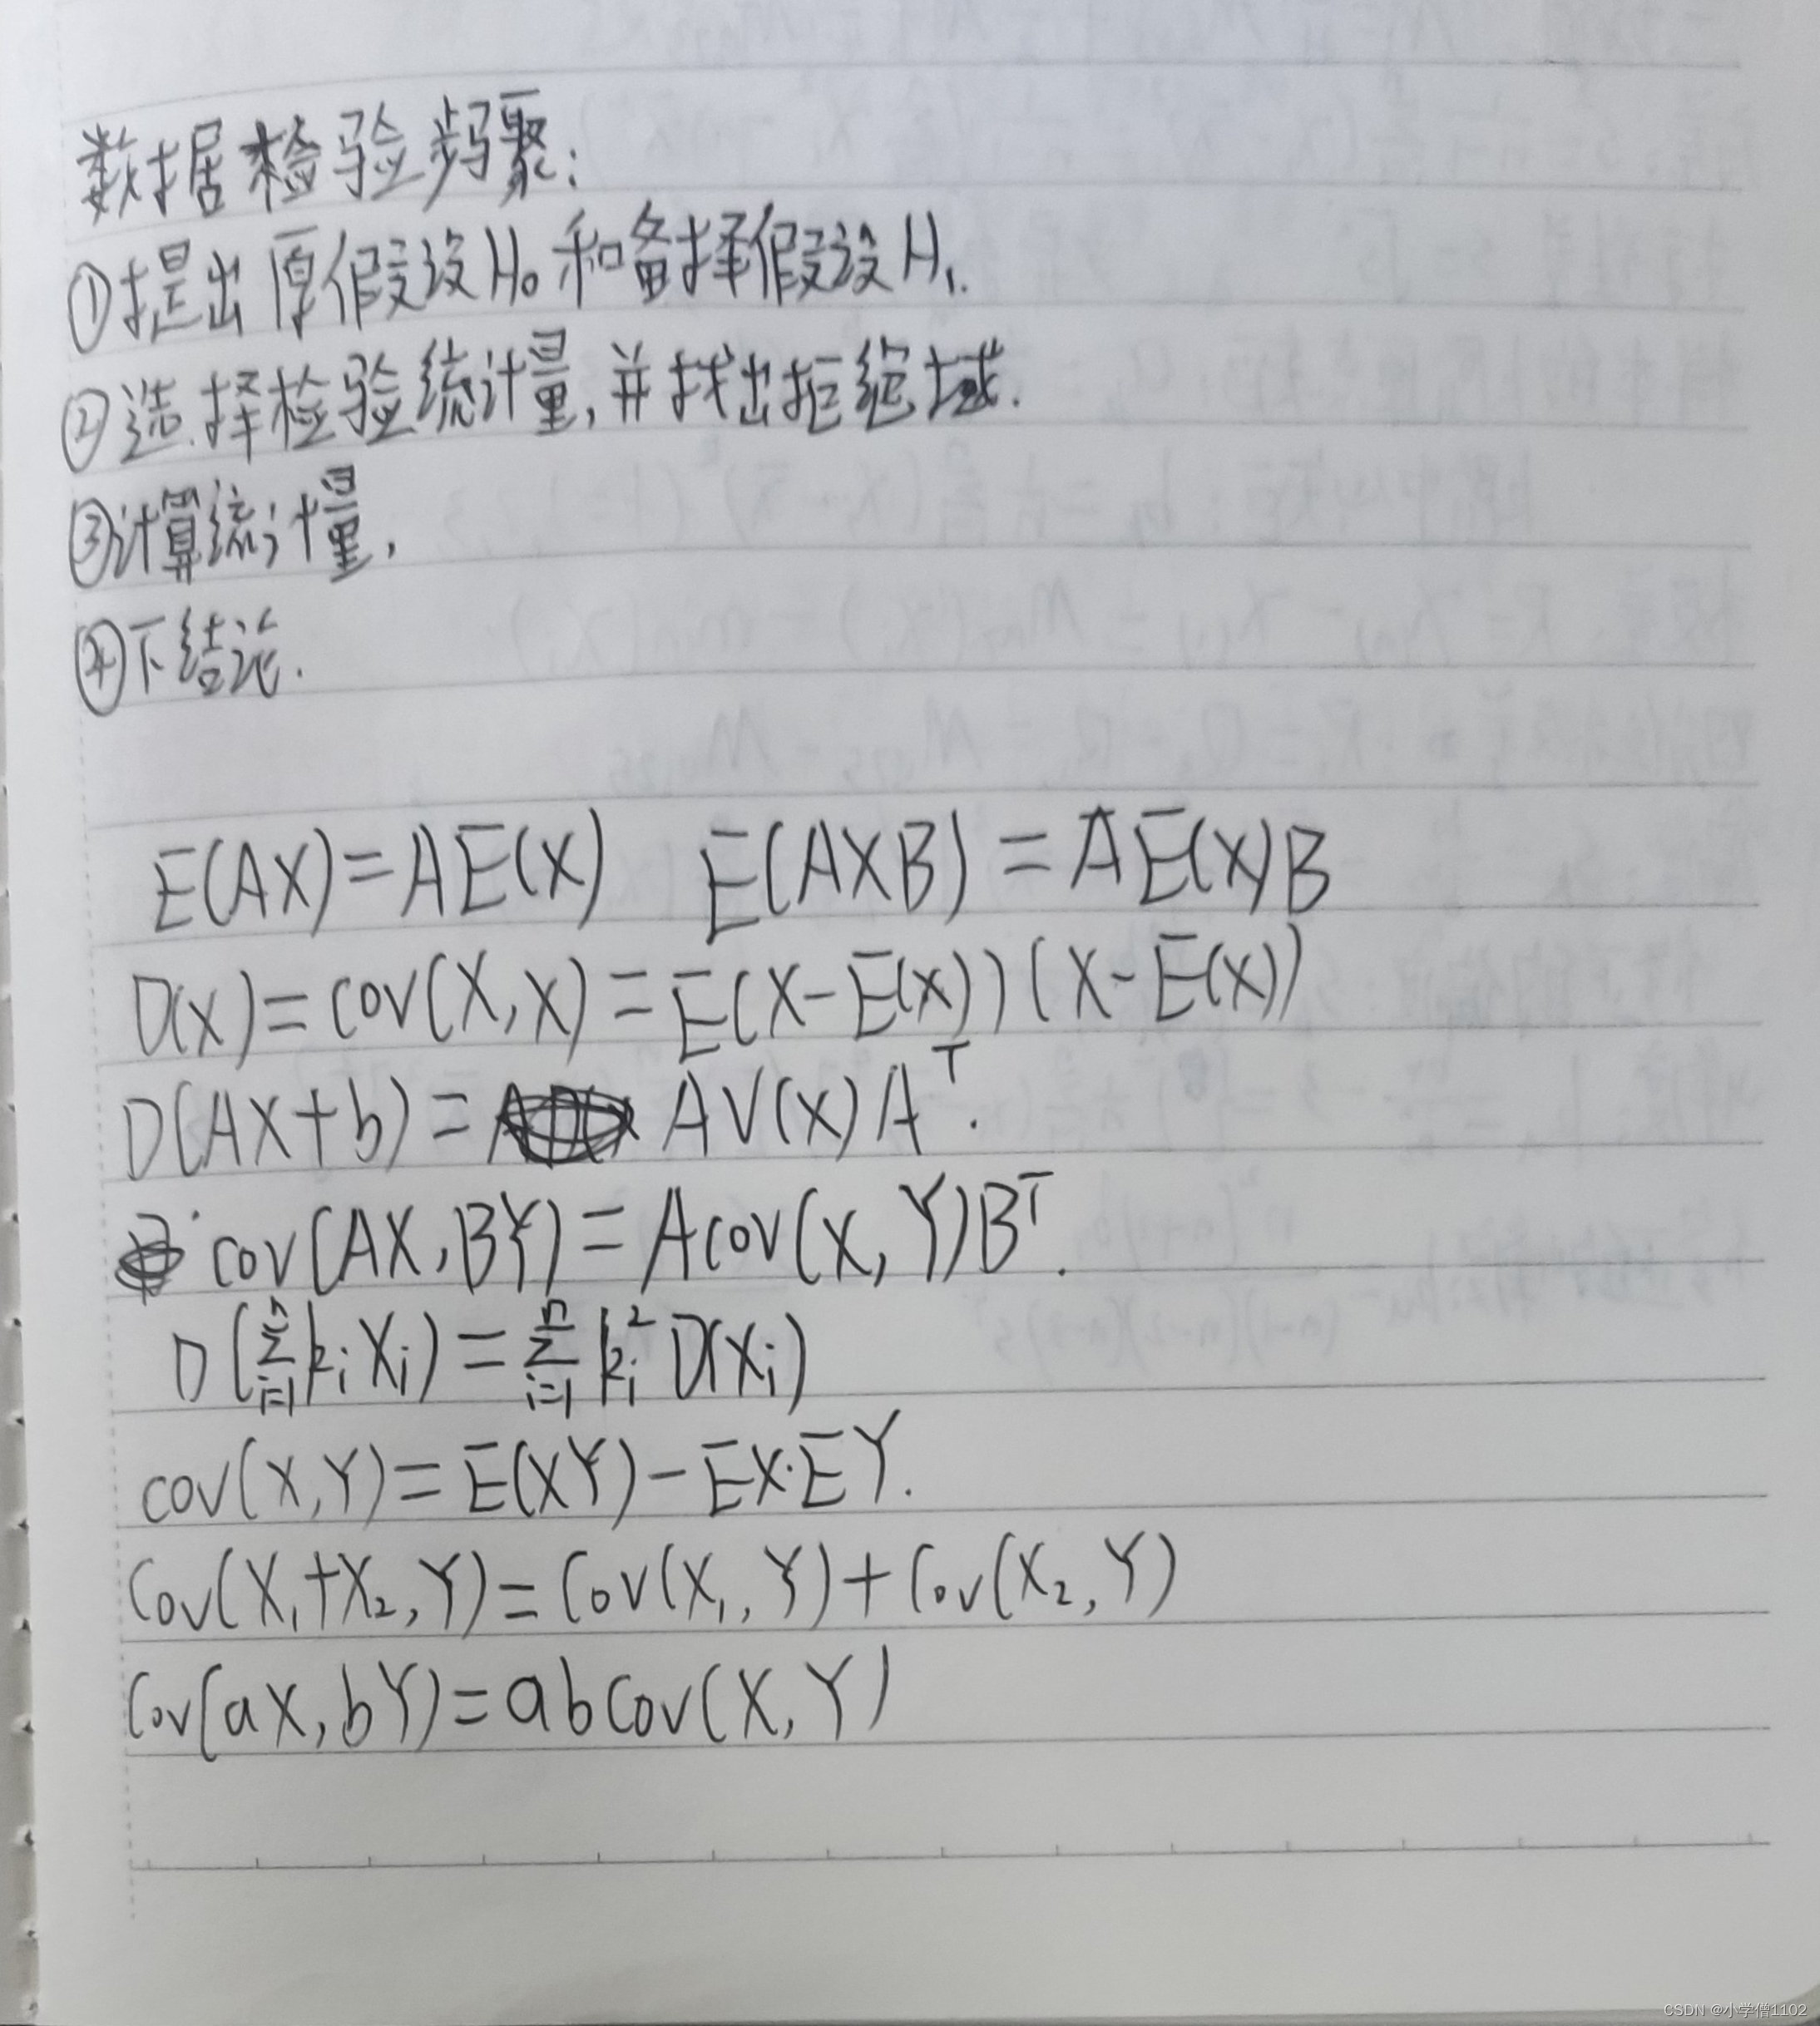 数据检验步骤:
①提出原假设H₀和备择假设H₁.
②选择检验统计量,并找出拒绝域.
③计算统计量,
④下结论.
E(AX)=AE(X) E(AXB)=AE(X)B
D(X)=cov(X,X)=E(X-E(X))(X-E(X))
D(AX+b)= AV(X)Aᵀ.
cov(AX,BY)=Acov(X,Y)Bᵀ.
D(∑ᵢ₌₁ⁿkᵢXᵢ)=∑ᵢ₌₁ⁿkᵢ²D(Xᵢ)
cov(X,Y)=E(XY)-EX·EY.
Cov(X₁+X₂,Y)=Cov(X₁,Y)+Cov(X₂,Y)
Cov(aX,bY)=abCov(X,Y)
CSDN @小学僧1102